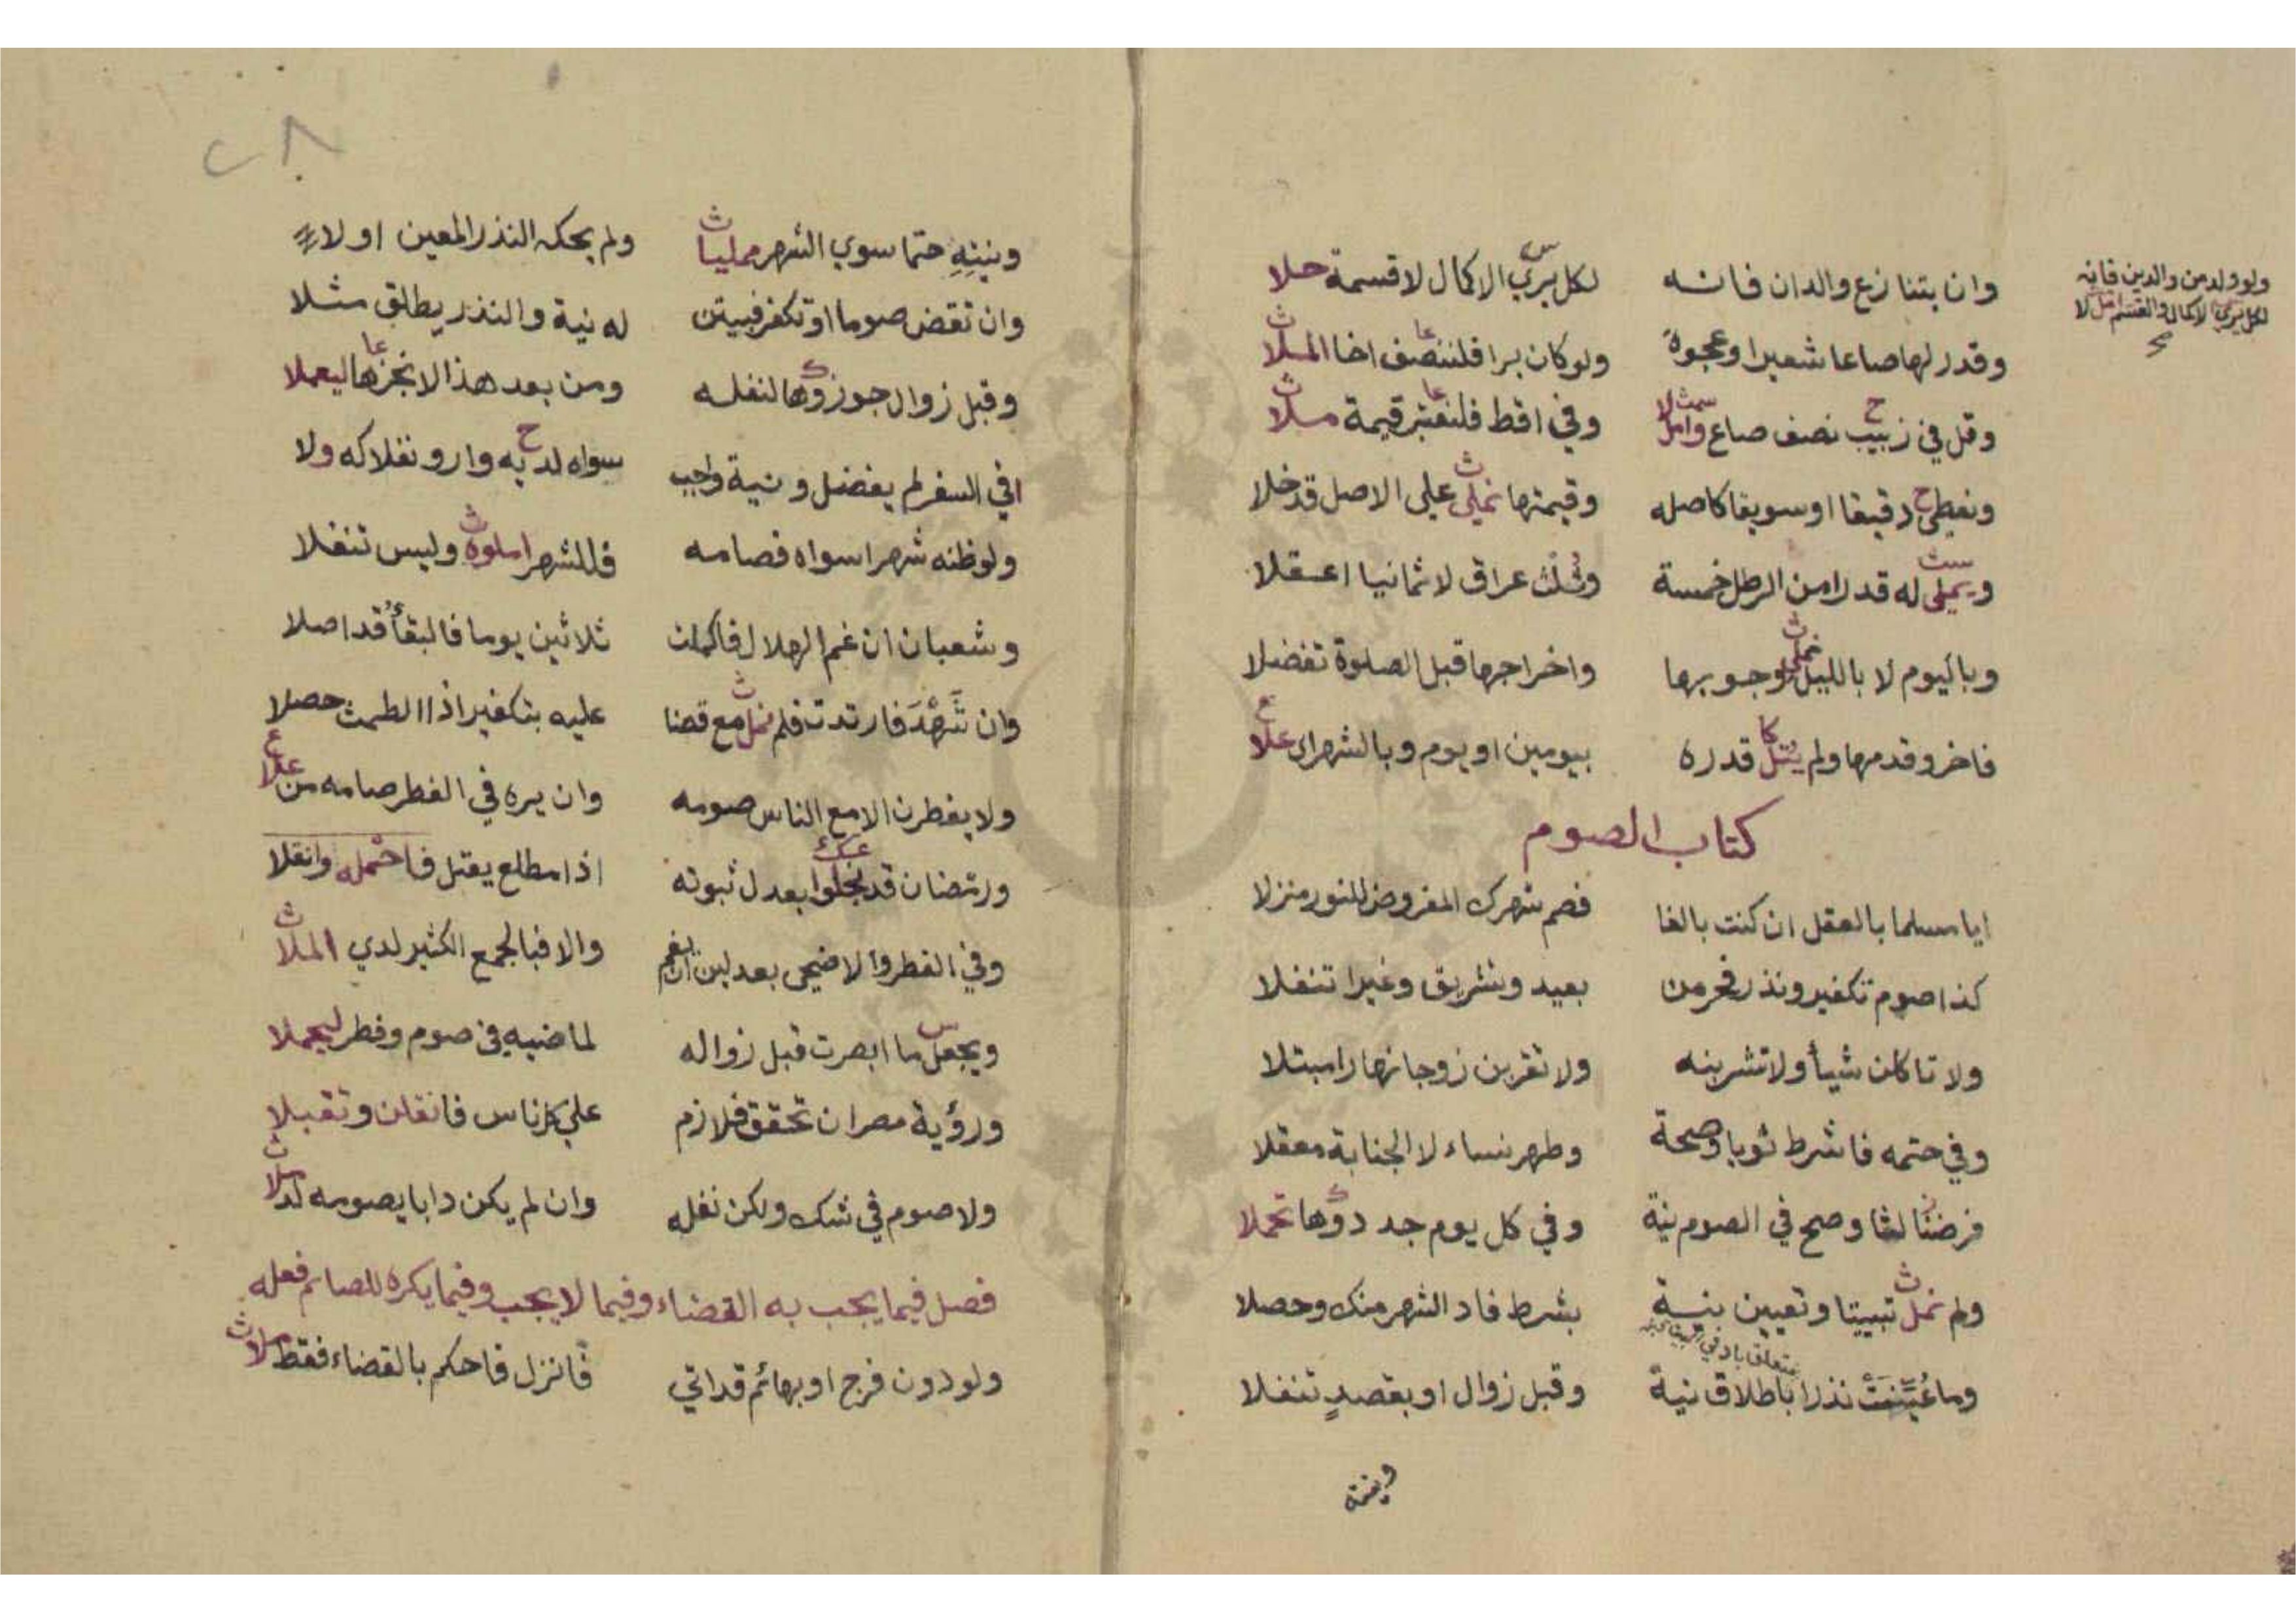 وان يتنازع والدان فانه لكل يري الاكمال لا قسمة حلا
ولو ولد من والدين فانه
لكل يري الاكمال والقسم امل لا
صح
وقدر لها صاعا شعيرا وعجوة ولو كان برا فلننصف اخا الملا
وقل في زبيب نصف صاع وامل وفي اقط فلنعتبر قيمة ملا
ونعطي دقيقا او سويقا كاصله وقيمتها نملي علي الاصل قد خلا
ويملي له قدرا من الرطل خمسة وثلث عراق لا ثمانيا اعقلا
وباليوم لا بالليل نملي وجوبها واخراجها قبل الصلوة تفضلا
فاخر وقدمها ولم يتل قدره بيومين او يوم وبالشهر اي علا
كتاب الصوم
ايا مسلما بالعقل ان كنت بالغا فصم شهرك المفروض للنور منزلا
كذا صوم تكفير ونذر فحرمن بعيد وتشريق وغيرا تنفلا
ولا تاكلن شيأ ولا تشربنه ولا تقربن زوجا نهارا مبتلا
وفي حتمه فاشرط ثويا وصحة وطهر نساء لا الجنابة معقلا
فرضنا لغا وصح في الصوم نية وفي كل يوم جددوها تحملا
ولم نمل تبييتا وتعيين نية بشرط فاد الشهر منك وحصلا
وما عينت نذرا باطلاق نية وقبل زوال او بقصد تنفلا
وبينه
٢٨
وبيته حتما سوي الشهر ممليا ولم يحكه النذر المعين اولا
وان تقض صوما او تكفر فبيتن له نية والنذر يطلق مثلا
وقبل زوال جوزوها لنفله ومن بعد هذا لا نجزها ليعملا
افي السفر لم يفضل ونية واجب سواه لديه وارو نفلا كه ولا
ولو ظنه شهرا سواه فصامه فللشهر املوه وليس تنفلا
وشعبان ان غم الهلال فاكملن ثلاثين يوما فالبقأ قد اصلا
وان تشهد فارتدت فلم نمل مع قضا عليه بتكفير اذا الطمث حصلا
ولا يفطرن الا مع الناس صومه وان يره في الفطر صامه من علا
ورمضان قد نجلوا بعدل ثبوته اذا مطلع يقتل فاحتمله وانقلا
وفي الفطر والاضحي بعدلين ان يغم والا فبالجمع الكثير لدي الملا
ويجعل ما ابصرت قبل زواله لماضيه في صوم وفطر ليجملا
ورؤية مصر ان تحقق فلازم علي كل ناس فانقلن وتقبلا
ولا صوم في شك ولكن نفله وان لم يكن دابا يصومه لد ملا
فصل فيما يجب به القضاء وفيما لا يجب وفيما يكره للصائم فعله
ولو دون فرج او بهائم قد اتي فانزل فاحكم بالقضاء فقط ملا